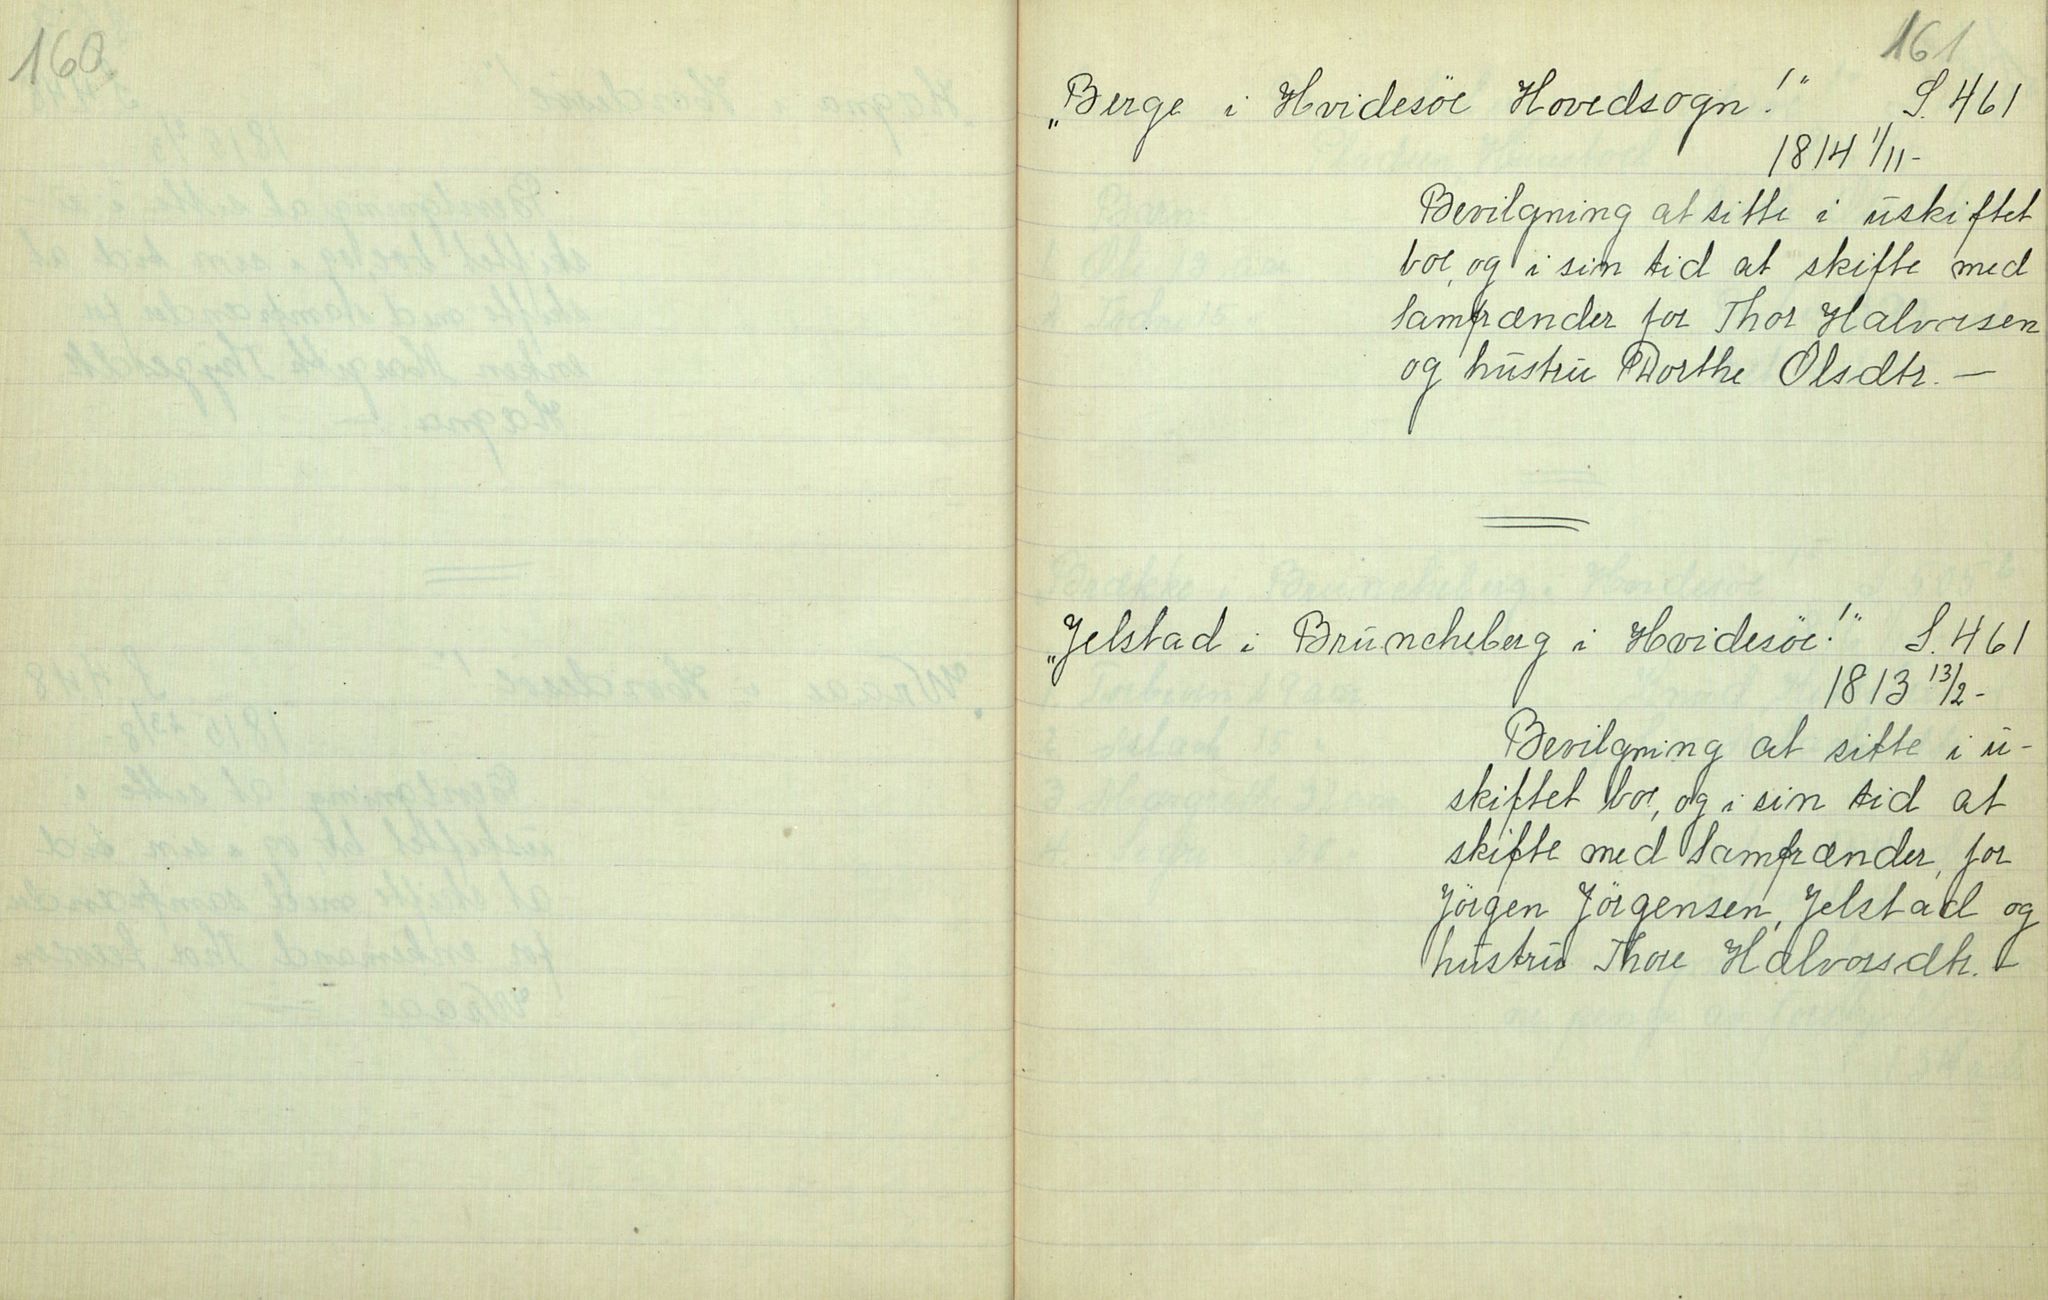 160
161
„Berge i Hvidesöe Hovedsogn!“ S. 461
1814 1/11-
Bevilgning at sitte i uskiftet
boe, og i sin tid at skifte med
Samfrænder for Thor Halvorsen
og hustru Dorthe Olsdtr. —
„Jelstad i Bruncheberg i Hvidesöe!“ S. 461
1813 13/2-
Bevilgning at sitte i u-
skiftet boe, og i sin tid at
skifte med Samfrænder, for
Jörgen Jörgensen, Jelstad og
hustru Thore Halvorsdtr. —